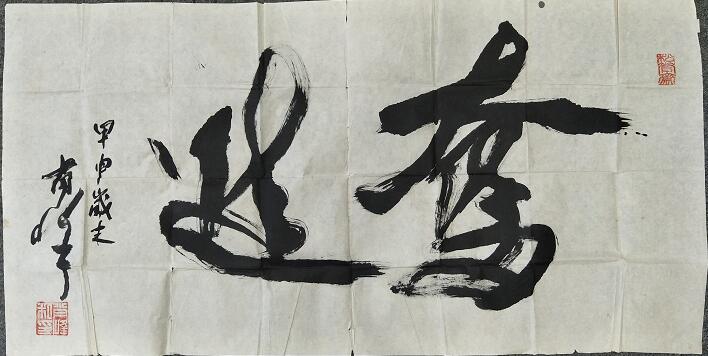 奮進
甲申歲末